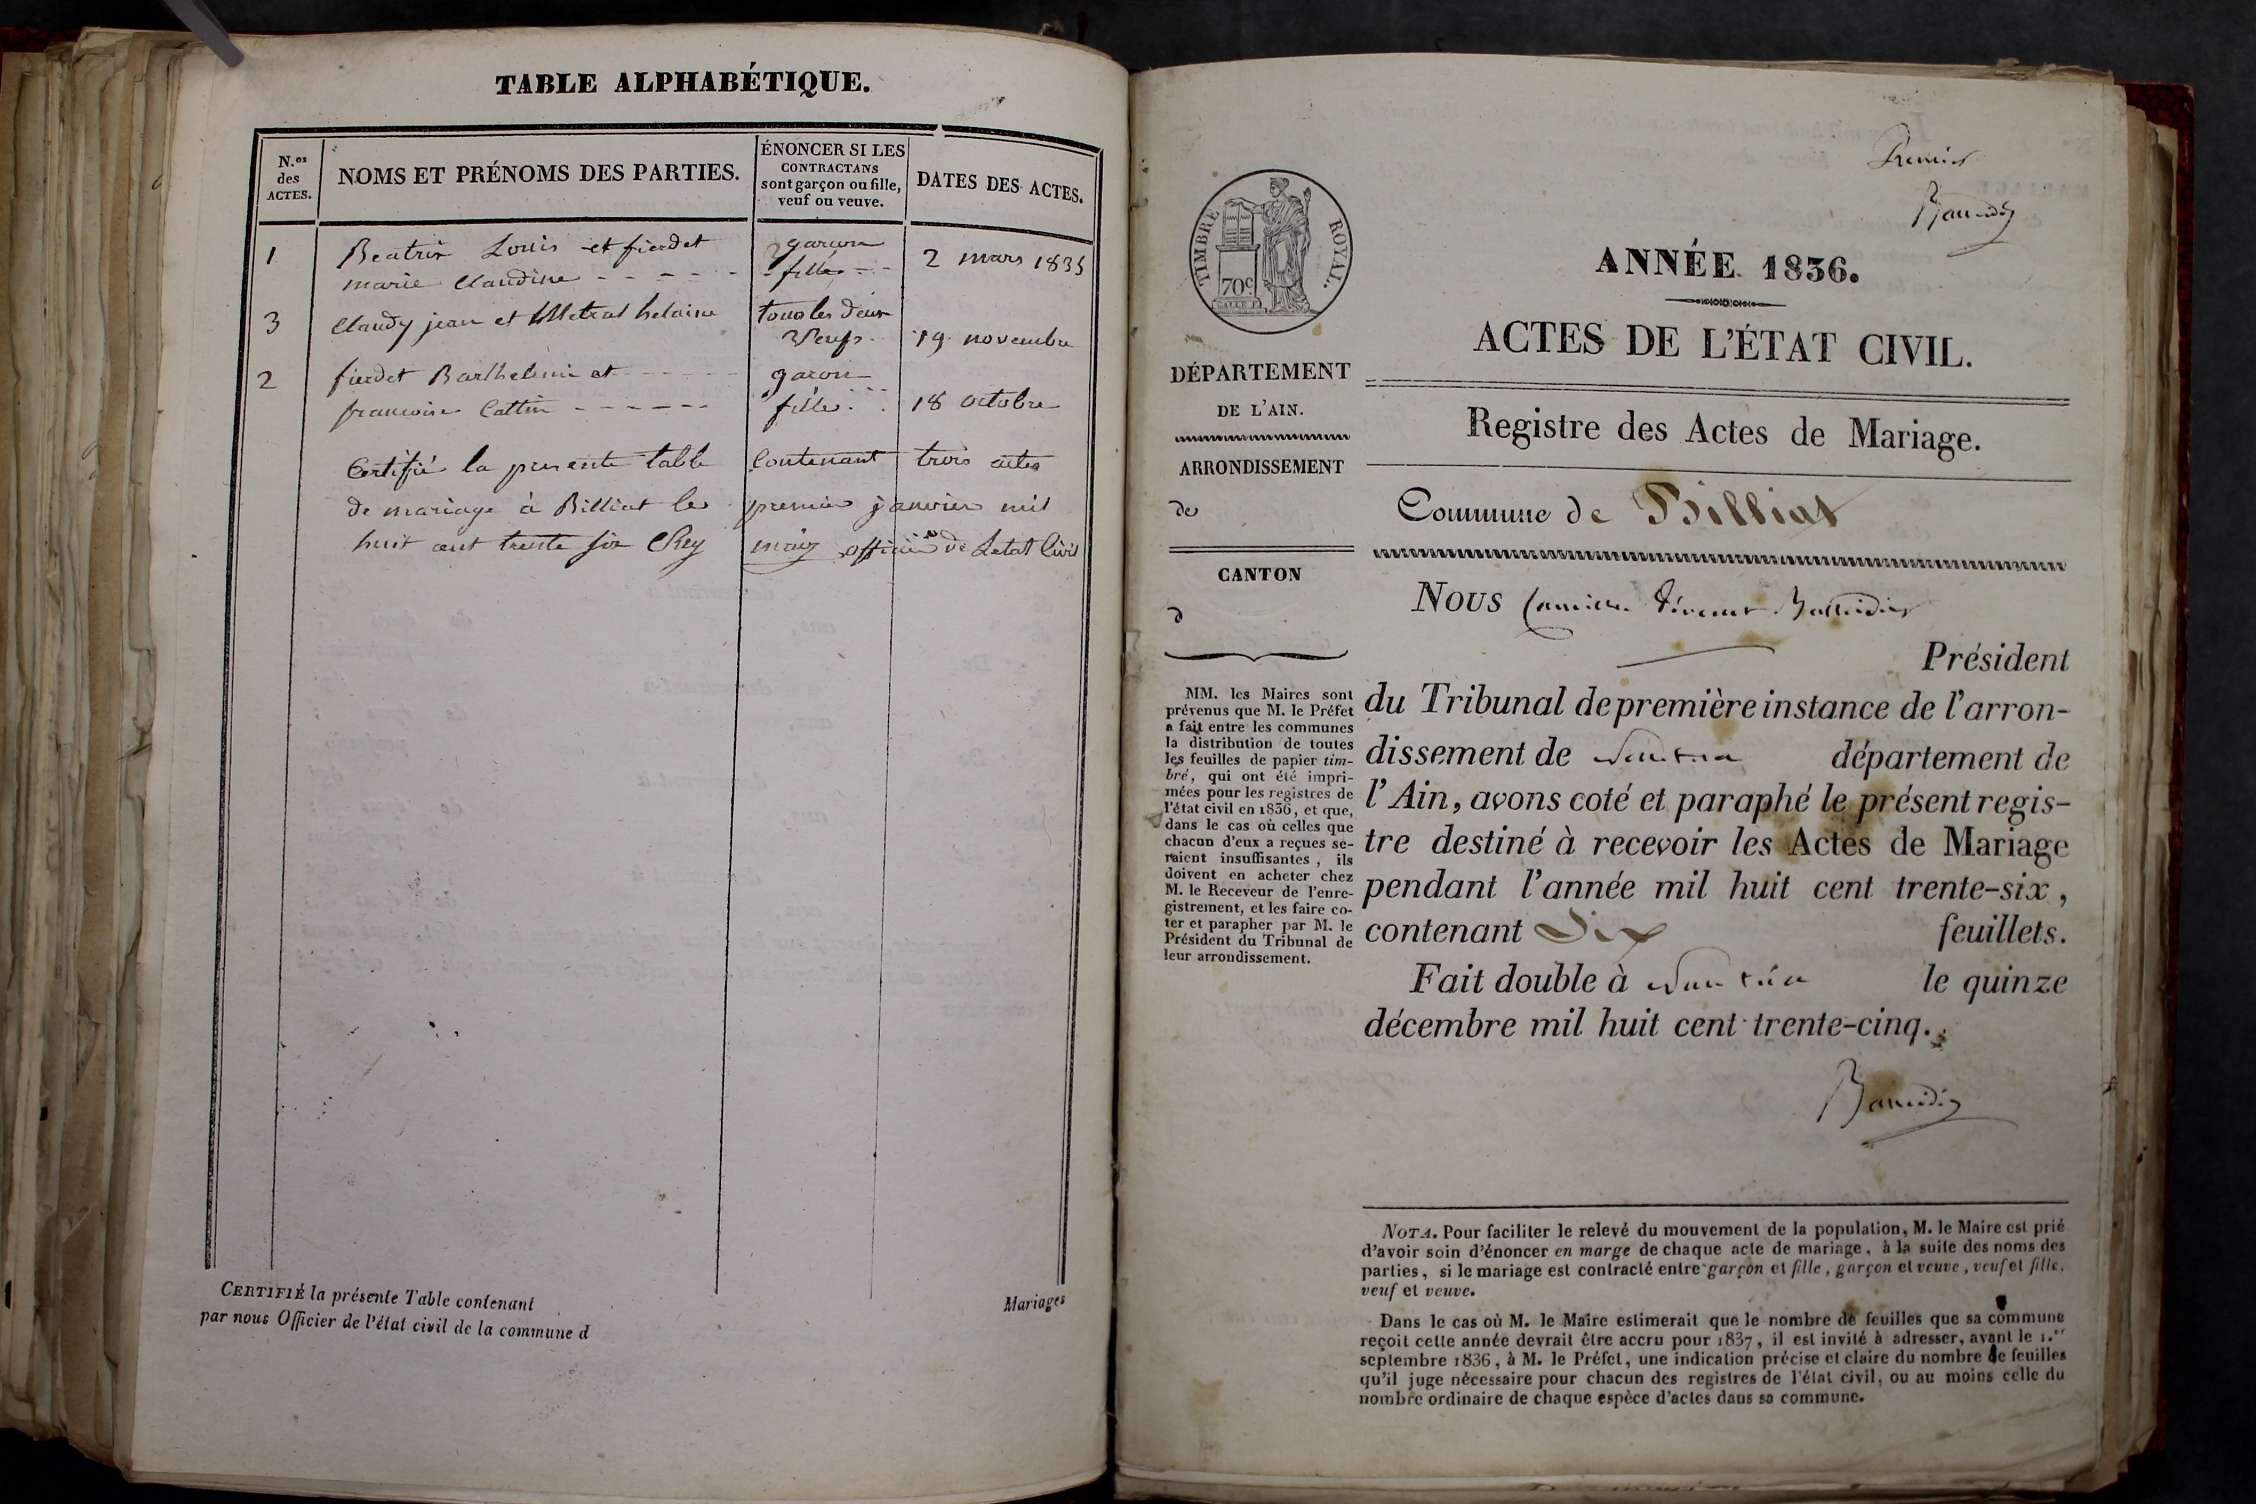 TABLE ALPHABÉTIQUE.
N.os des ACTES.
NOMS ET PRÉNOMS DES PARTIES.
ÉNONCER SI LES CONTRACTANS sont garçon ou fille, veuf ou veuve.
DATES DES ACTES.
1 Beatrix Louis et fierdet garçon 2 mars 1835
marie Claudine fille
3 Claudy jean et helaine tous les deux
Veufs 19 novembre
2 fierdet Barthelemi et garcon
francoise Cattin fille 18 octobre
Certifié la presente table Contenant trois actes
de mariage à Billiat le premier janvier mil
huit cent trente six Rey officier de Letat Civil
CERTIFIÉ la présente Table contenant
par nous Officier de l'état civil de la commune d
Mariages
Premier
TIMBRE ROYAL.
70c.
ANNÉE 1836.
ACTES DE L'ÉTAT CIVIL.
DÉPARTEMENT
DE L'AIN.
ARRONDISSEMENT
de
CANTON
d
MM. les Maires sont
prévenus que M. le Préfet
a fait entre les communes
la distribution de toutes
les feuilles de papier tim-
bré, qui ont été impri-
mées pour les registres de
l'état civil en 1836, et que,
dans le cas où celles que
chacun d'eux a reçues se-
raient insuffisantes, ils
doivent en acheter chez
M. le Receveur de l'enre-
gistrement, et les faire co-
ter et parapher par M. le
Président du Tribunal de
leur arrondissement.
Registre des Actes de Mariage.
Commune de Billiat
Nous
Président
du Tribunal de première instance de l'arron-
dissement de Nantua département de
l'Ain, avons coté et paraphé le présent regis-
tre destiné à recevoir les Actes de Mariage
pendant l'année mil huit cent trente-six,
contenant Six feuillets.
Fait double à Nantua le quinze
décembre mil huit cent trente-cinq.
NOTA. Pour faciliter le relevé du mouvement de la population, M. le Maire est prié
d'avoir soin d'énoncer en marge de chaque acte de mariage, à la suite des noms des
parties, si le mariage est contracté entre garçon et fille, garçon et veuve, veuf et fille,
veuf et veuve.
Dans le cas où M. le Maire estimerait que le nombre de feuilles que sa commune
reçoit cette année devrait être accru pour 1837, il est invité à adresser, avant le 1.er
septembre 1836, à M. le Préfet, une indication précise et claire du nombre de feuilles
qu'il juge nécessaire pour chacun des registres de l'état civil, ou au moins celle du
nombre ordinaire de chaque espèce d'actes dans sa commune.